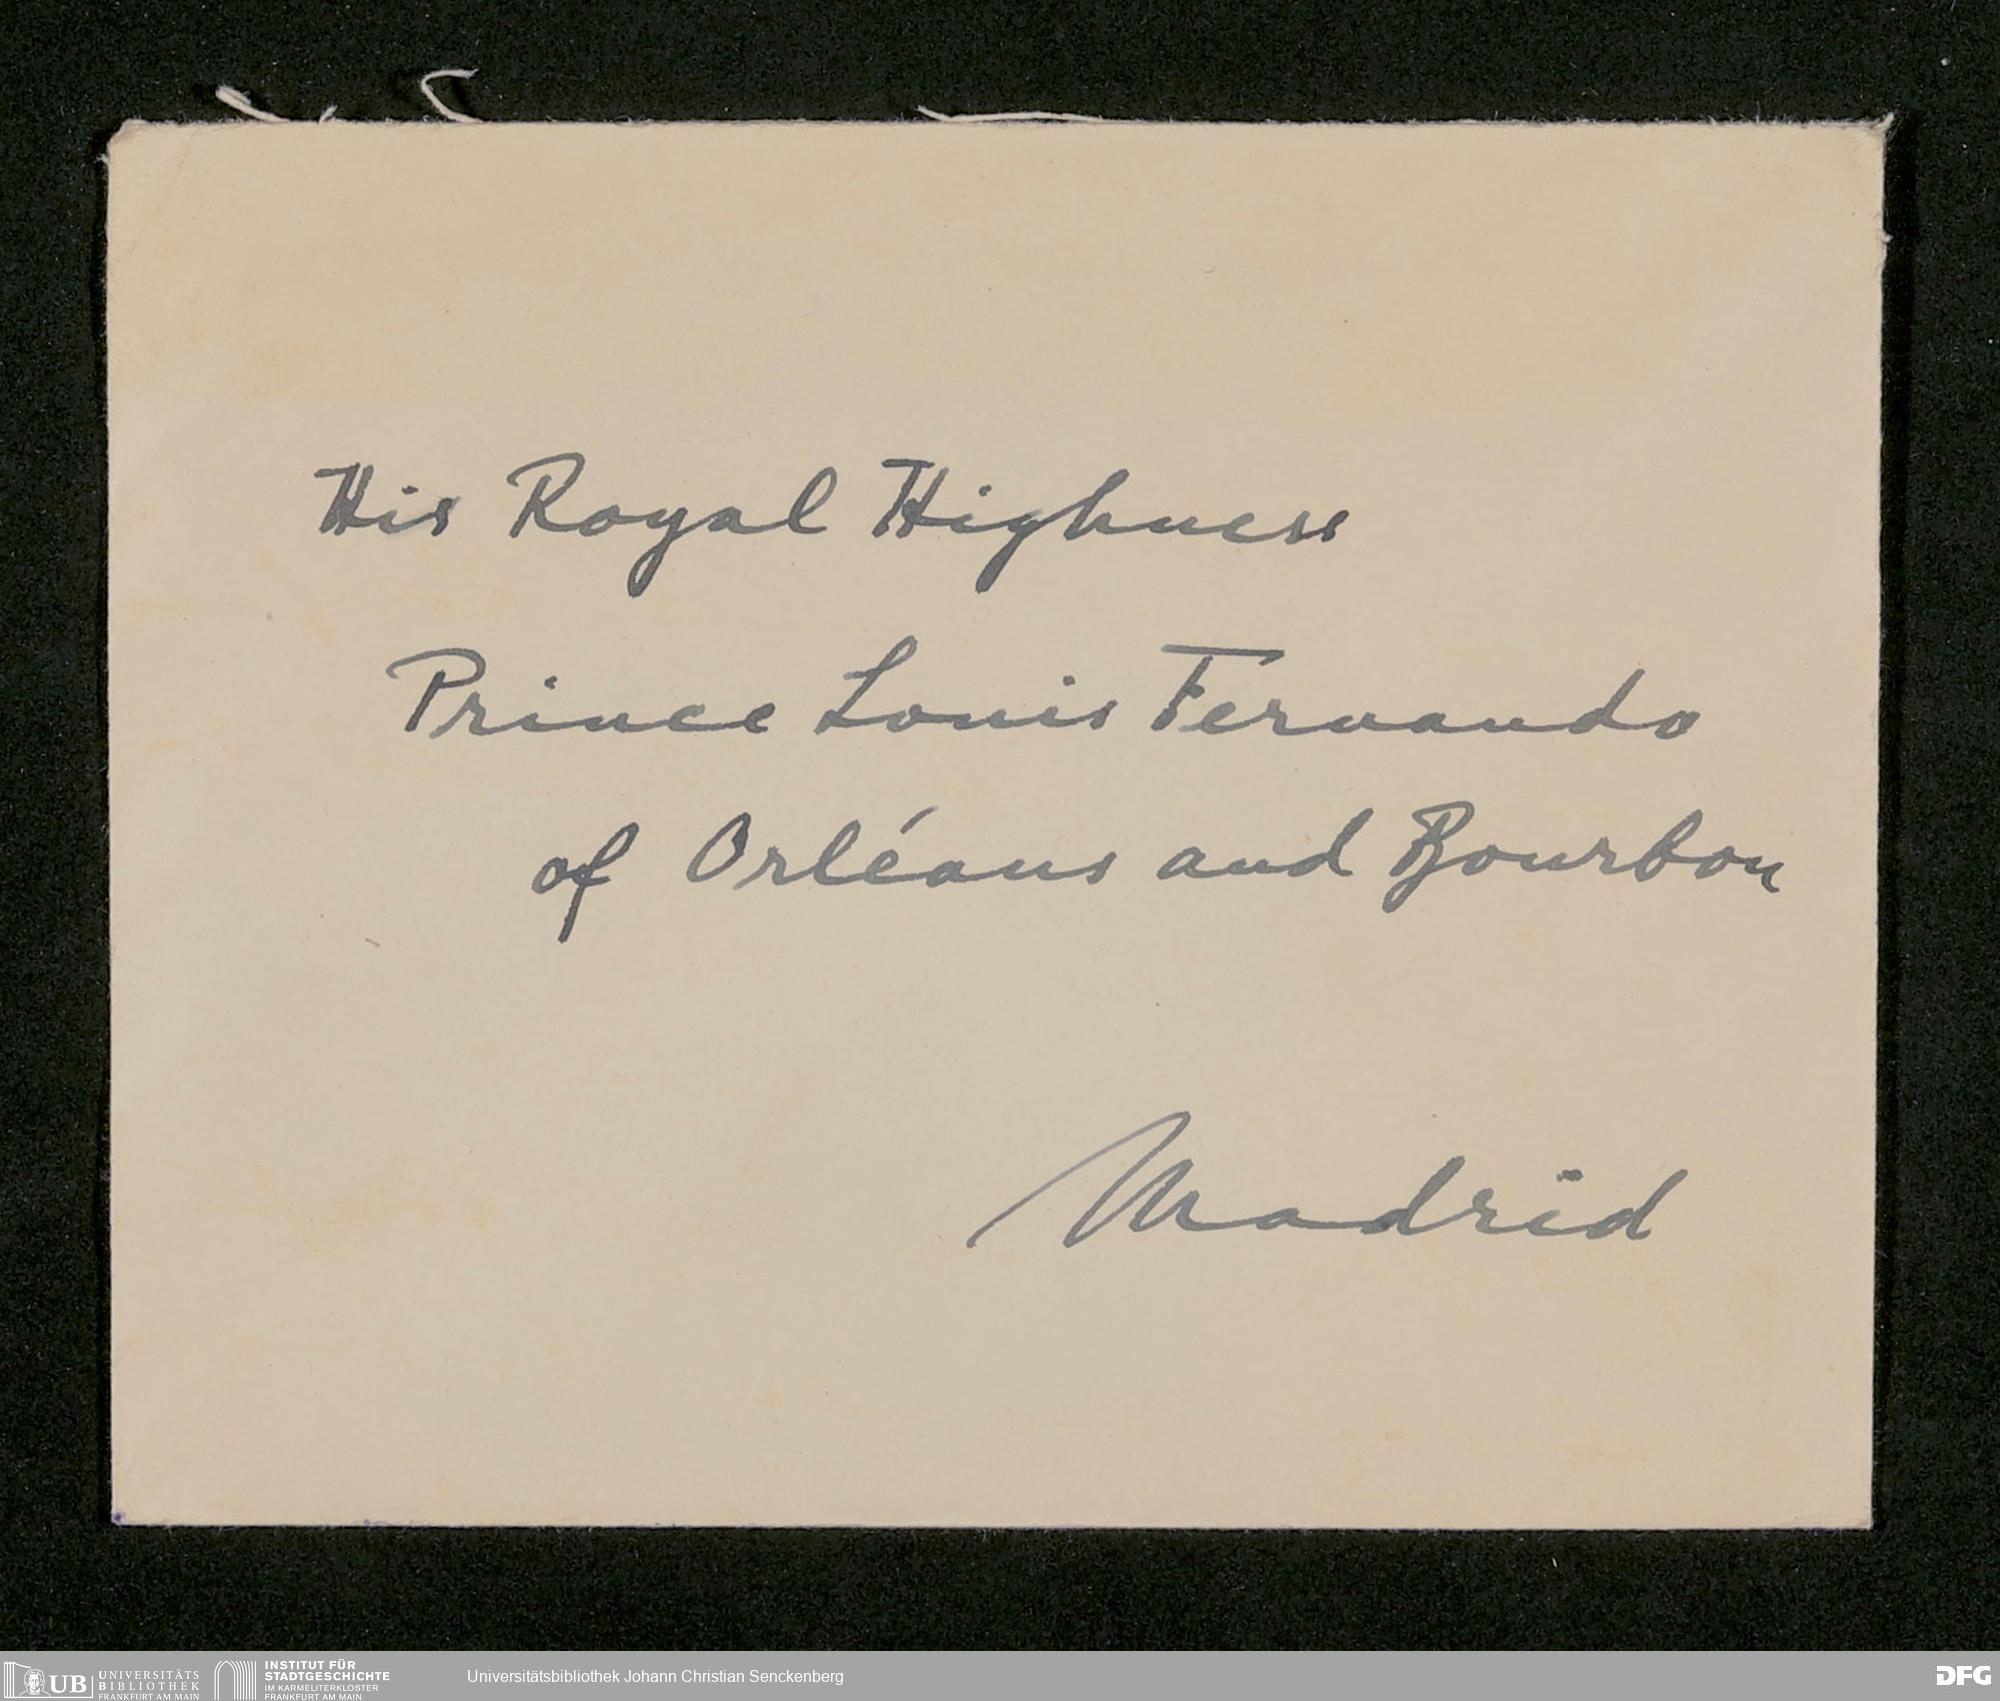 His Royal Highness
Prince Louis Fernando
of Orléans and Bourbon
Madrid
UB UNIVERSITÄTS
BIBLIOTHEK
FRANKFURT AM MAIN
INSTITUT FÜR
STADTGESCHICHTE
IM KARMELITERKLOSTER
FRANKFURT AM MAIN
Universitätsbibliothek Johann Christian Senckenberg
DFG